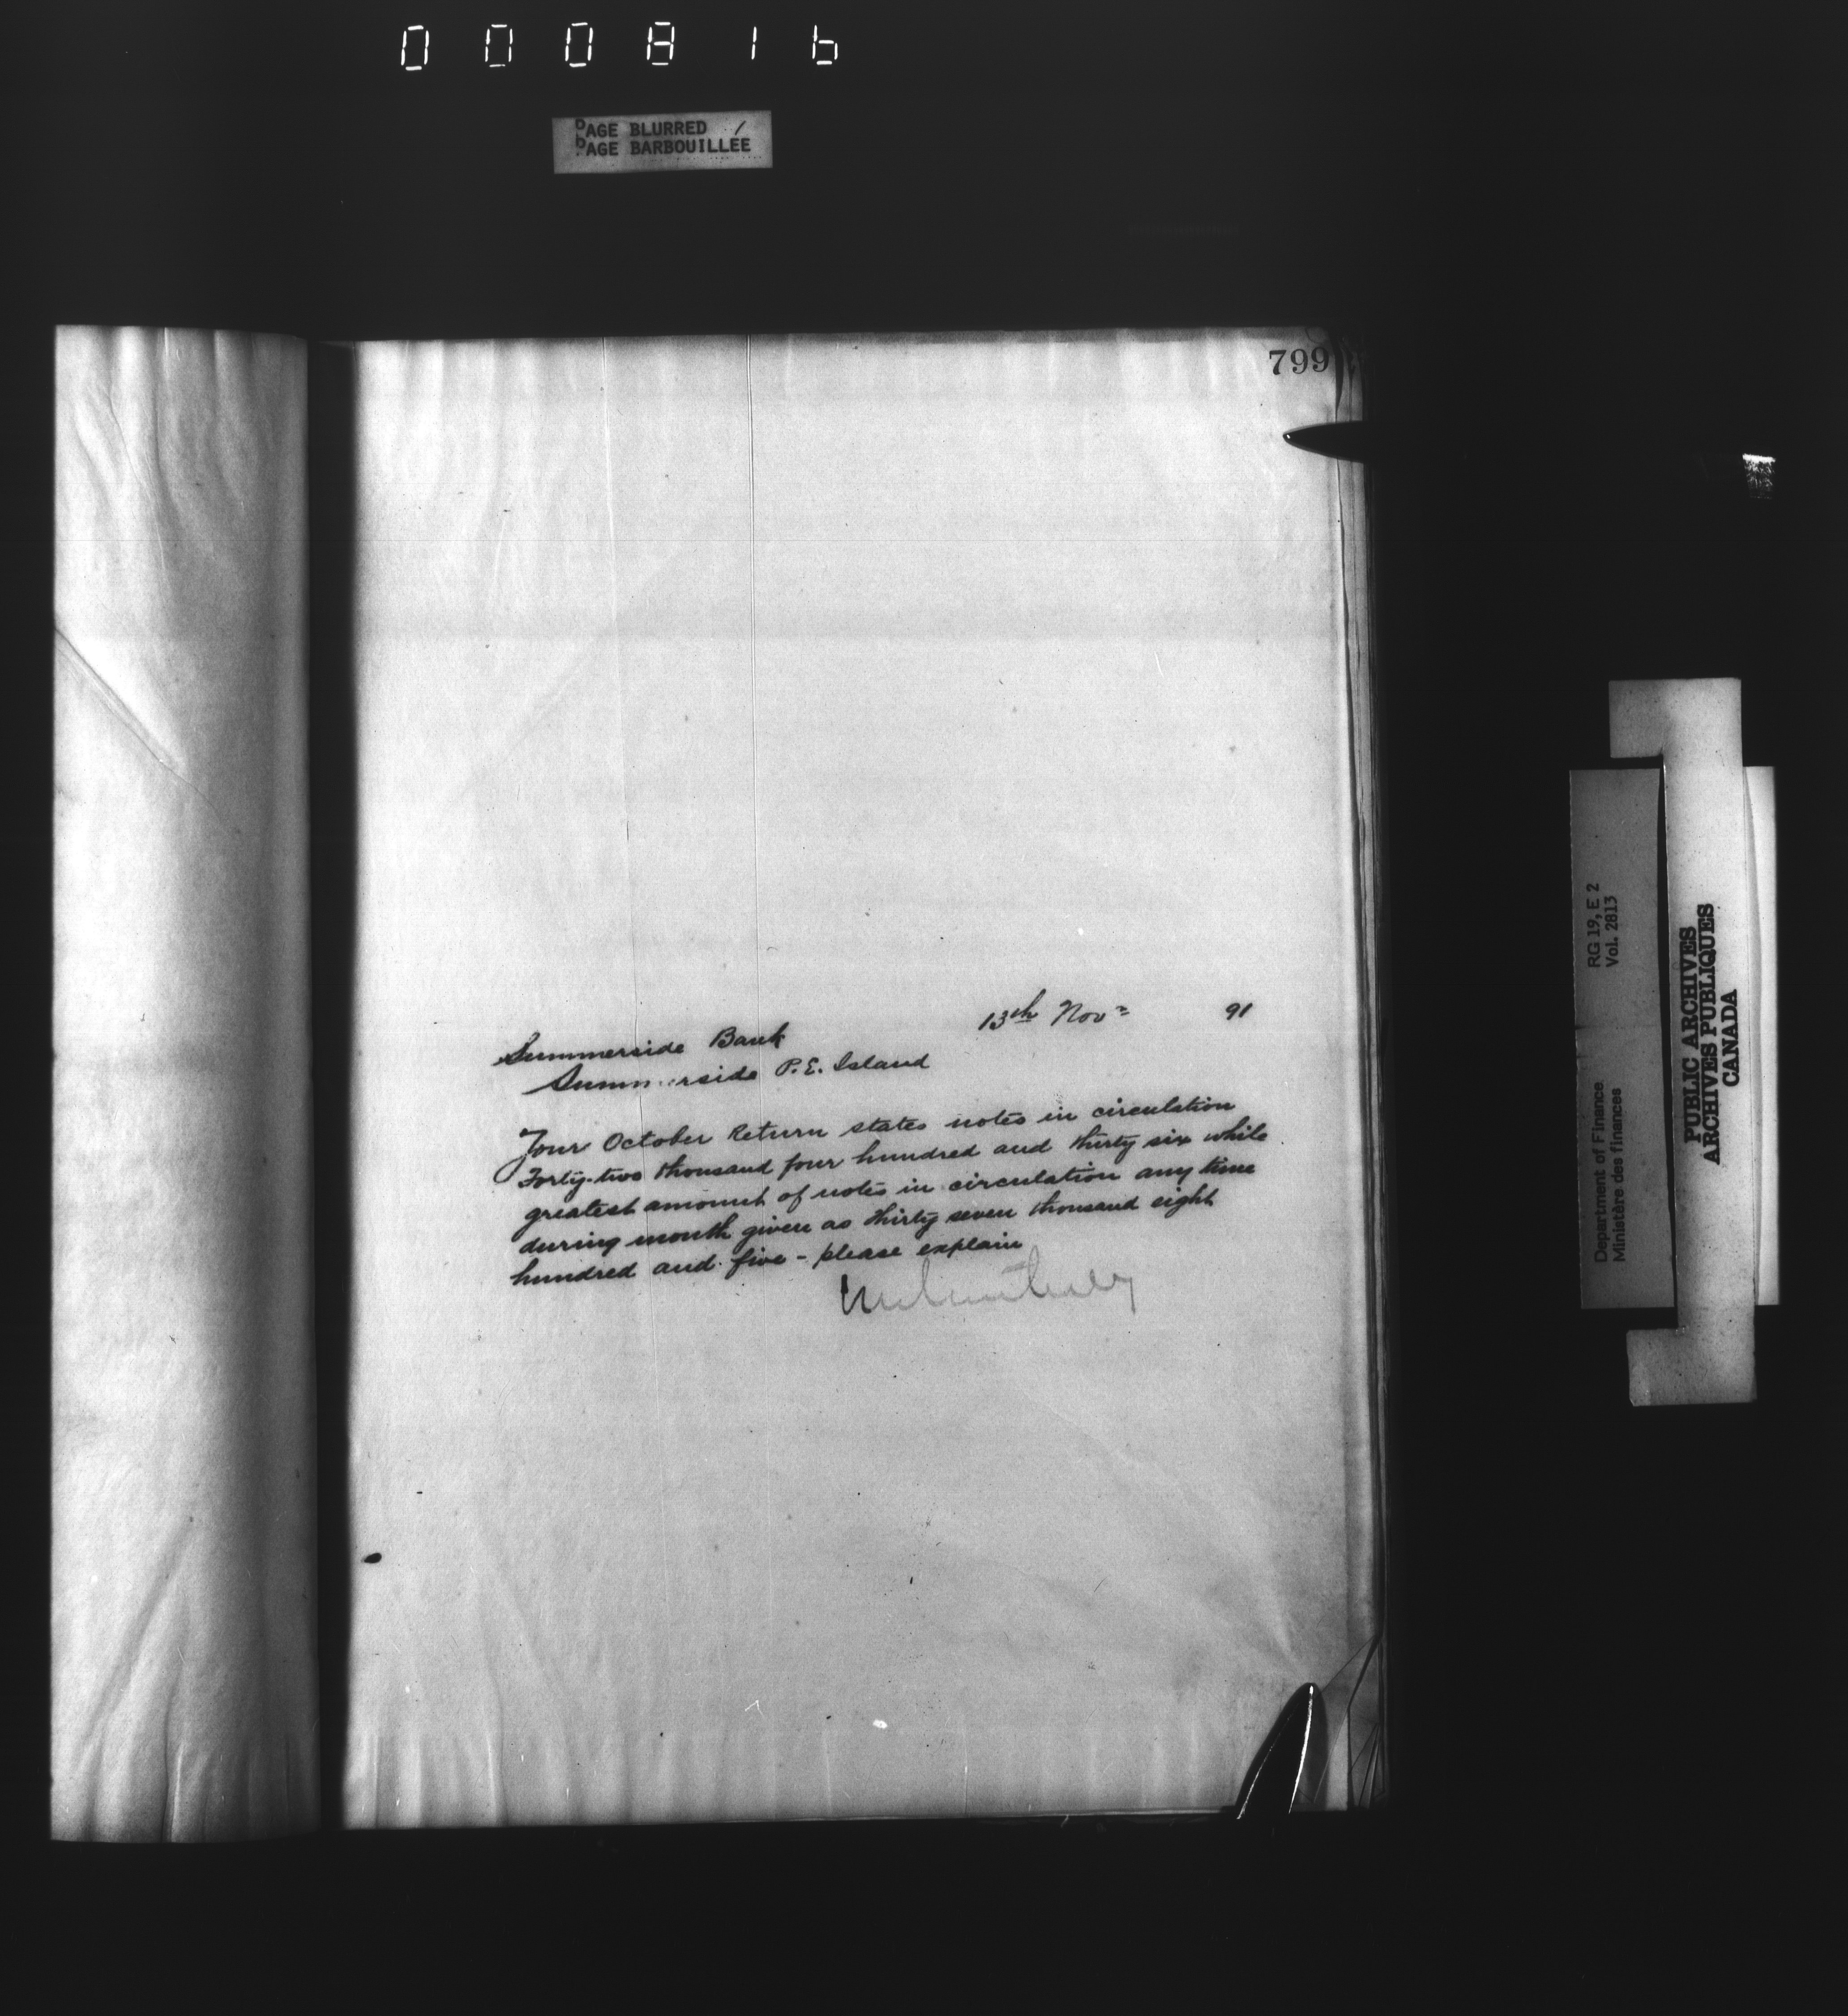 000816
PAGE BLURRED /
PAGE BARBOUILLÉE
799
13th Novr 91
Summerside Bank
Summerside P.E. Island
Your October Return states notes in circulation
Forty-two thousand four hundred and thirty six while
greatest amount of notes in circulation any time
during month given as thirty seven thousand eight
hundred and five - please explain
RG 19, E 2
Vol. 2813
Department of Finance
Ministère des finances
PUBLIC ARCHIVES
ARCHIVES PUBLIQUES
CANADA